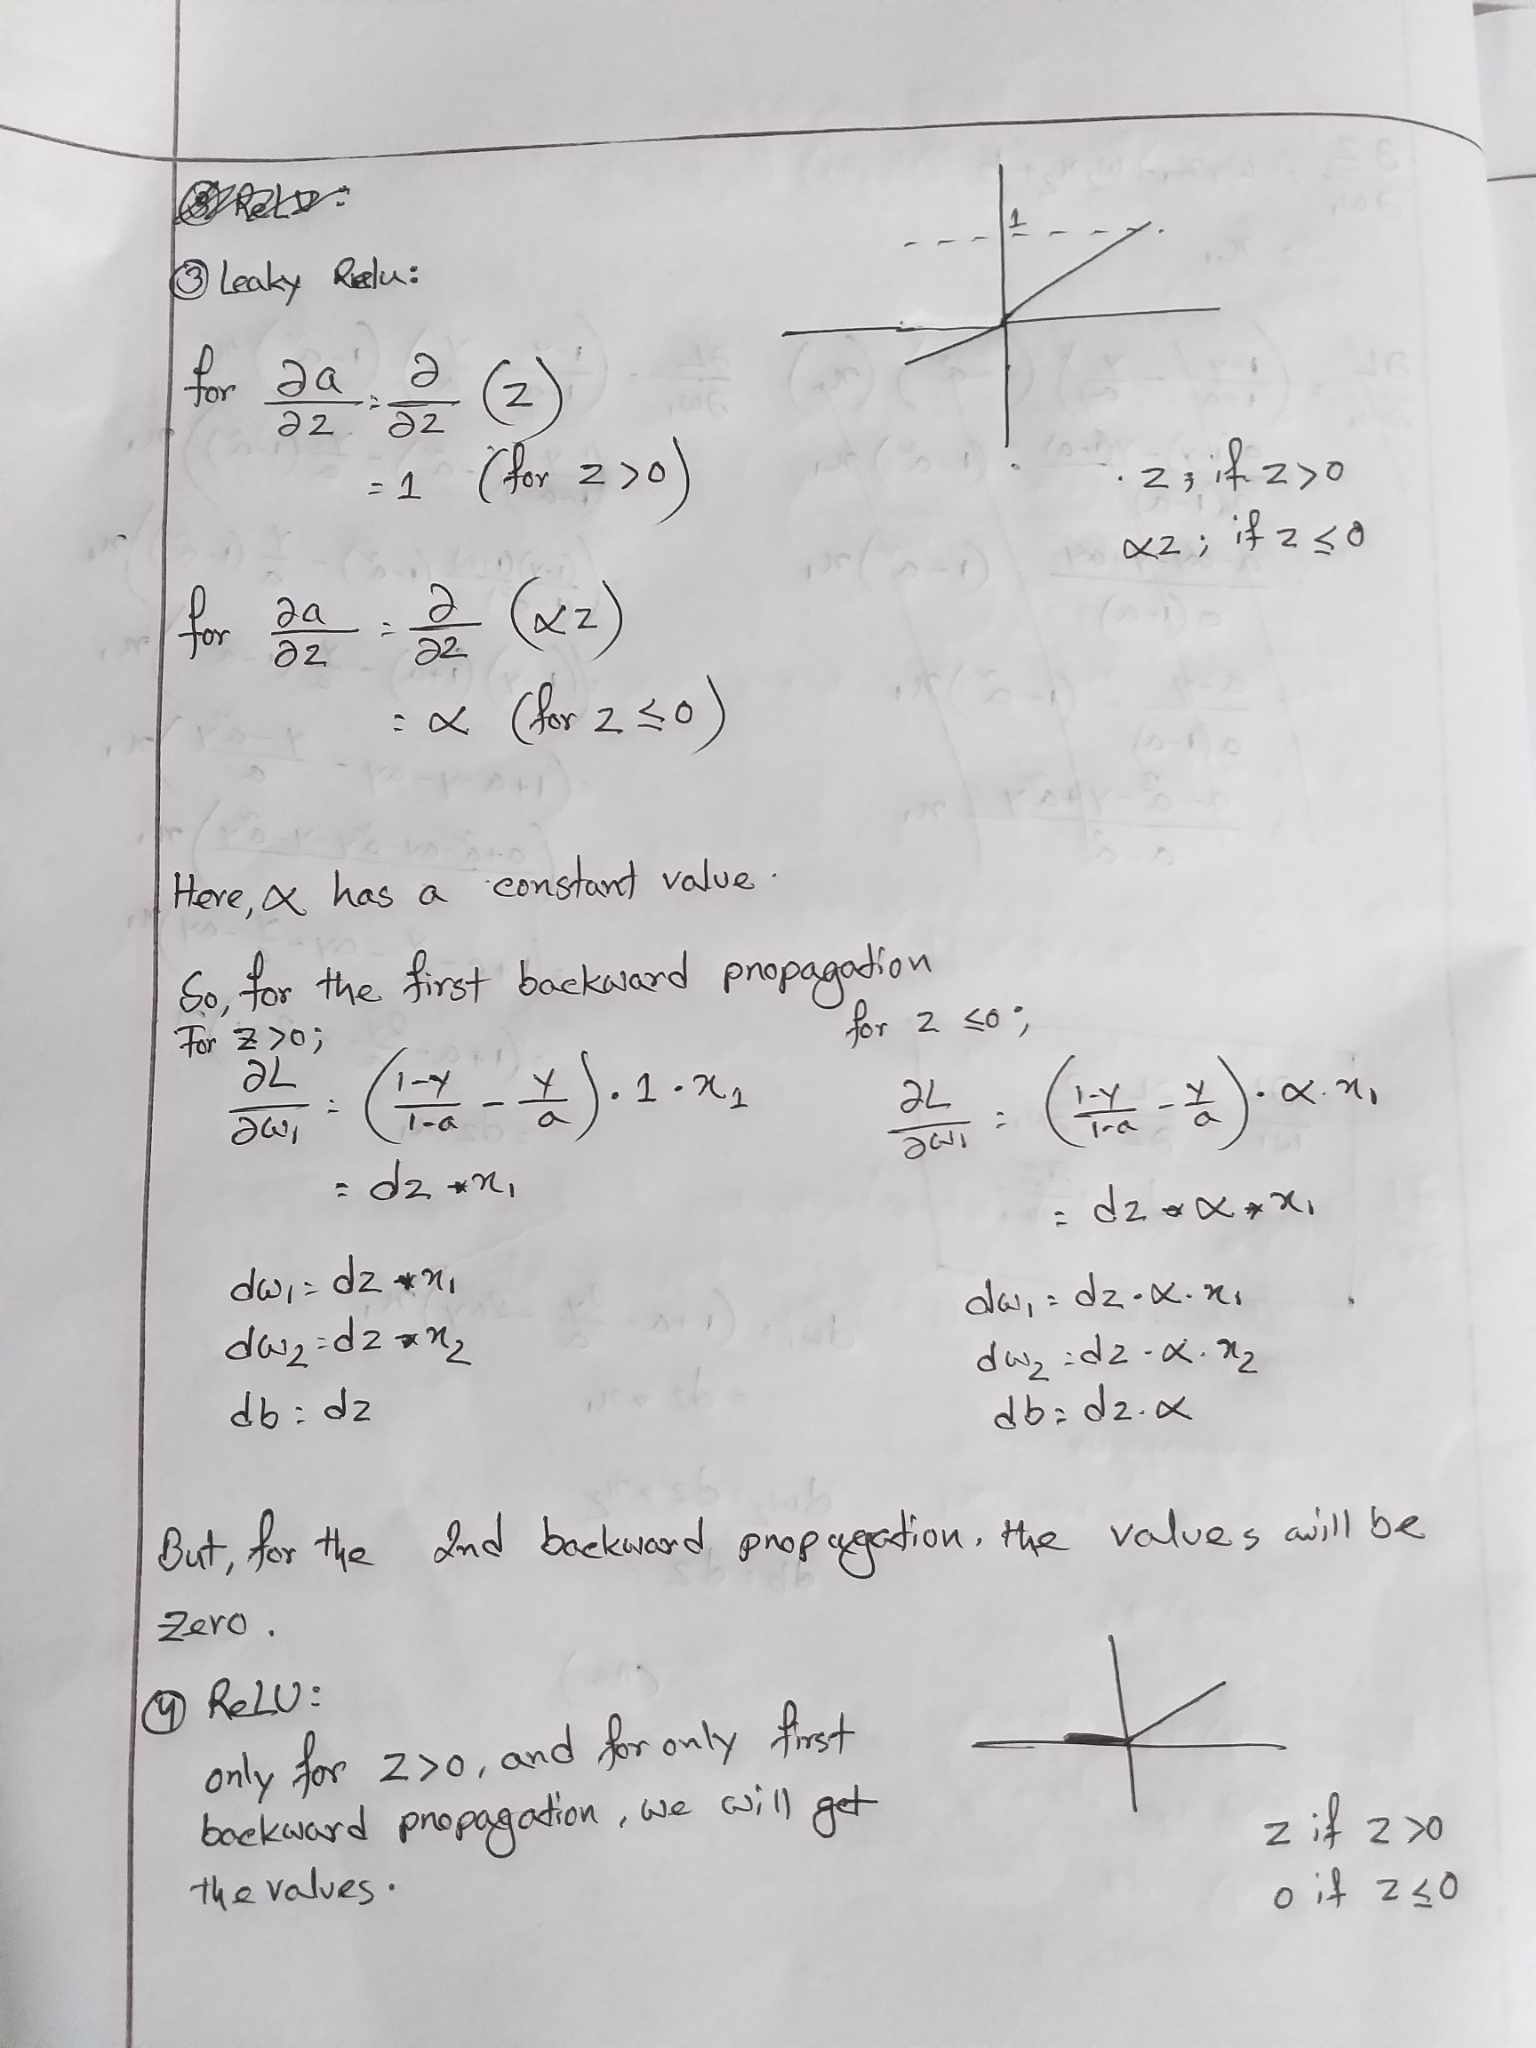 ③ Leaky Relu:
1
for ∂a/∂z = ∂/∂z (z)
= 1 (for z>0)
z; if z>0
αz; if z≤0
for ∂a/∂z = ∂/∂z (αz)
= α (for z≤0)
Here, α has a constant value.
So, for the first backward propagation
For z>0;
∂L/∂w₁ = ((1-y)/(1-a) - y/a) · 1 · x₁
= dz * x₁
dw₁ = dz * x₁
dw₂ = dz * x₂
db = dz
for z≤0;
∂L/∂w₁ = ((1-y)/(1-a) - y/a) · α · x₁
= dz * α * x₁
dw₁ = dz · α · x₁
dw₂ = dz · α · x₂
db = dz · α
But, for the 2nd backward propagation, the values will be
zero.
④ ReLU:
only for z>0, and for only first
backward propagation, we will get
the values.
z if z>0
0 if z≤0